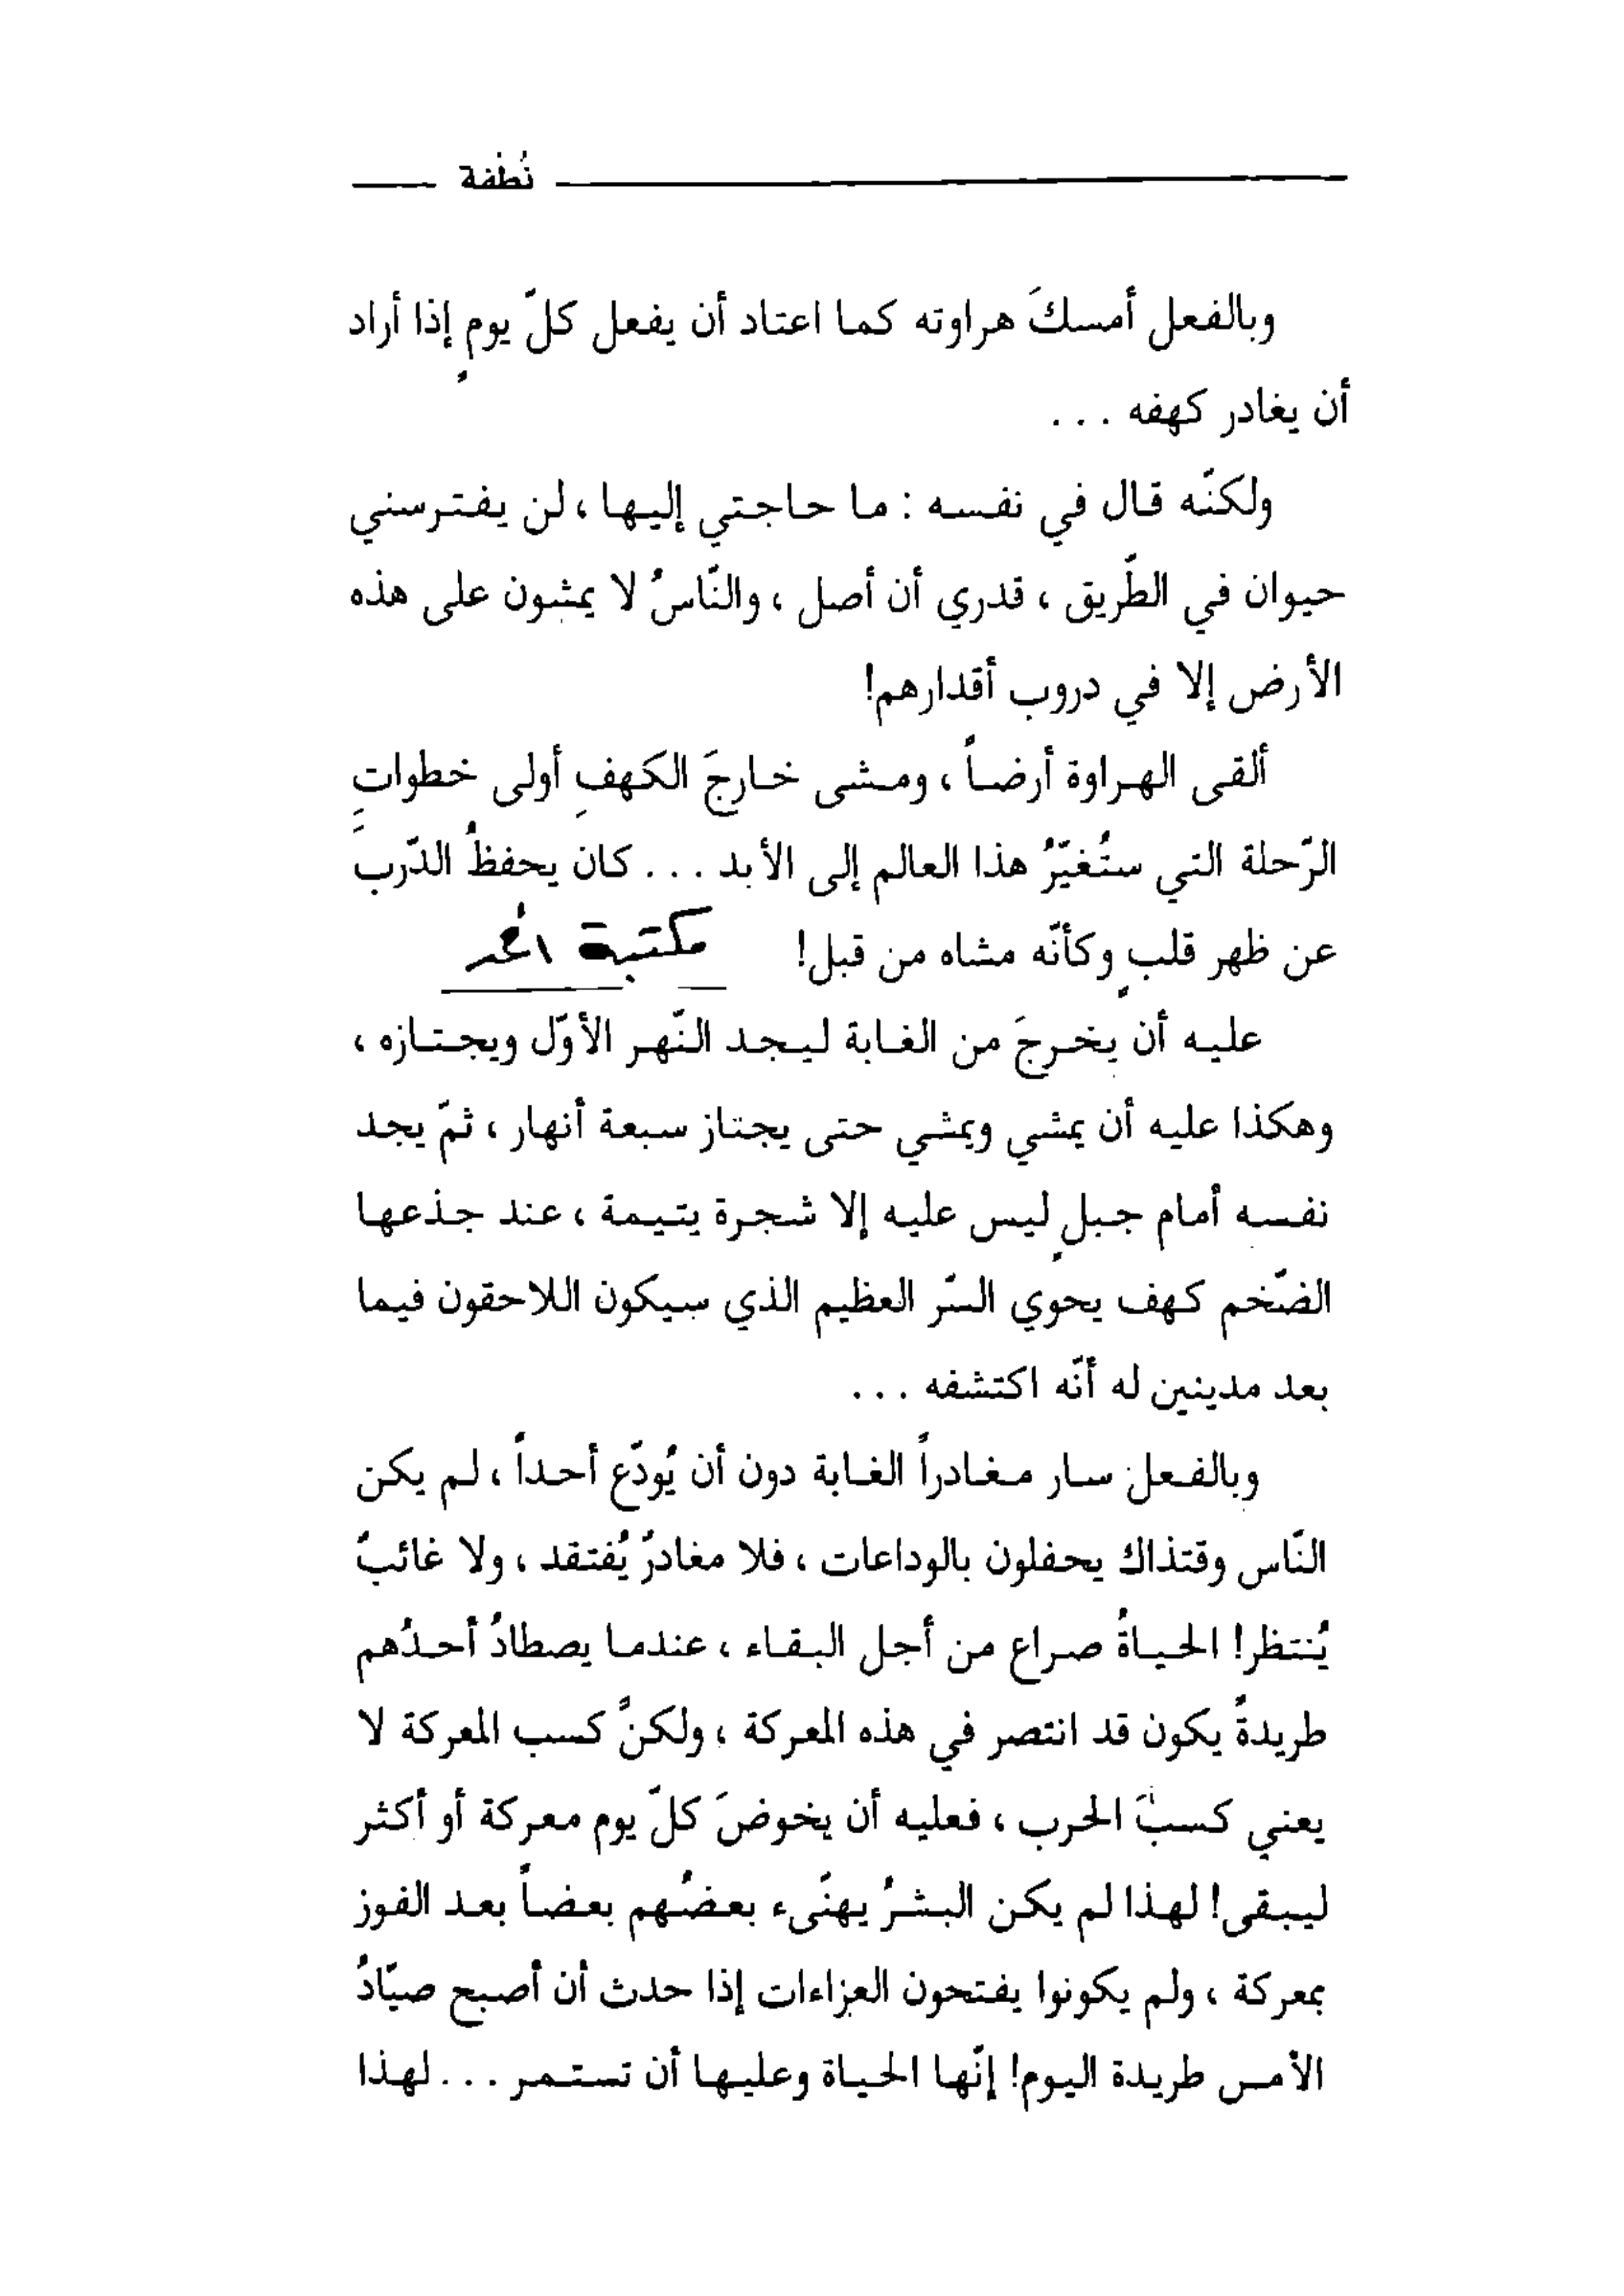 نُطْفة
وبالفعل أمسكَ هراوته كما اعتاد أن يفعل كلّ يومٍ إذا أراد
أن يغادر كهفه ...
ولكنّه قال في نفسه : ما حاجتي إليها ، لن يفترسني
حيوان في الطّريق ، قدري أن أصل ، والنّاسُ لا يمشون على هذه
الأرض إلا في دروب أقدارهم!
ألقى الهراوة أرضاً ، ومشى خارجَ الكهفِ أولى خطواتِ
الرّحلة التي ستُغيّرُ هذا العالم إلى الأبد ... كان يحفظُ الدّربَ
عن ظهر قلبٍ وكأنّه مشاه من قبل! مكتبة
عليه أن يخرجَ من الغابة ليجد النّهر الأوّل ويجتازه ،
وهكذا عليه أن يمشي ويمشي حتى يجتاز سبعة أنهار ، ثمّ يجد
نفسه أمام جبلٍ ليس عليه إلا شجرة يتيمة ، عند جذعها
الضّخم كهف يحوي السّر العظيم الذي سيكون اللاحقون فيما
بعد مدينين له أنّه اكتشفه ...
وبالفعل سار مغادراً الغابة دون أن يُودّع أحداً ، لم يكن
النّاس وقتذاك يحفلون بالوداعات ، فلا مغادرٌ يُفتقد ، ولا غائبٌ
يُنتظر! الحياةُ صراع من أجل البقاء ، عندما يصطادُ أحدُهم
طريدةً يكون قد انتصر في هذه المعركة ، ولكنَّ كسب المعركة لا
يعني كسبَ الحرب ، فعليه أن يخوضَ كلّ يوم معركة أو أكثر
ليبقى! لهذا لم يكن البشرُ يهنّىء بعضُهم بعضاً بعد الفوز
بمعركة ، ولم يكونوا يفتحون العزاءات إذا حدث أن أصبح صيّادُ
الأمس طريدة اليوم! إنّها الحياة وعليها أن تستمر ... لهذا